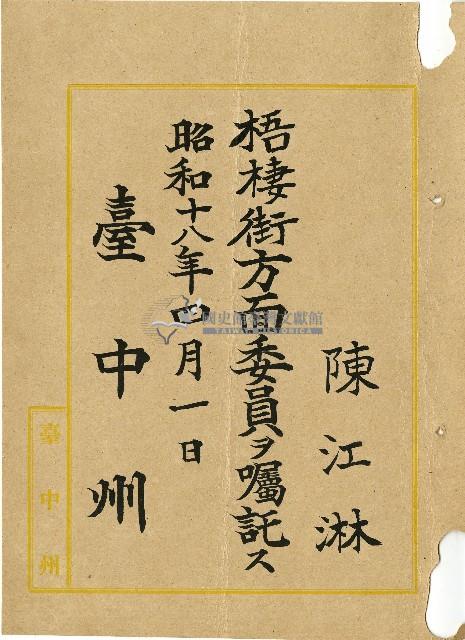 陳江淋
梧棲街方面委員ヲ囑託ス
昭和十八年四月一日
臺中州
臺中州
國史館臺灣文獻館
TAIWAN HISTORICA